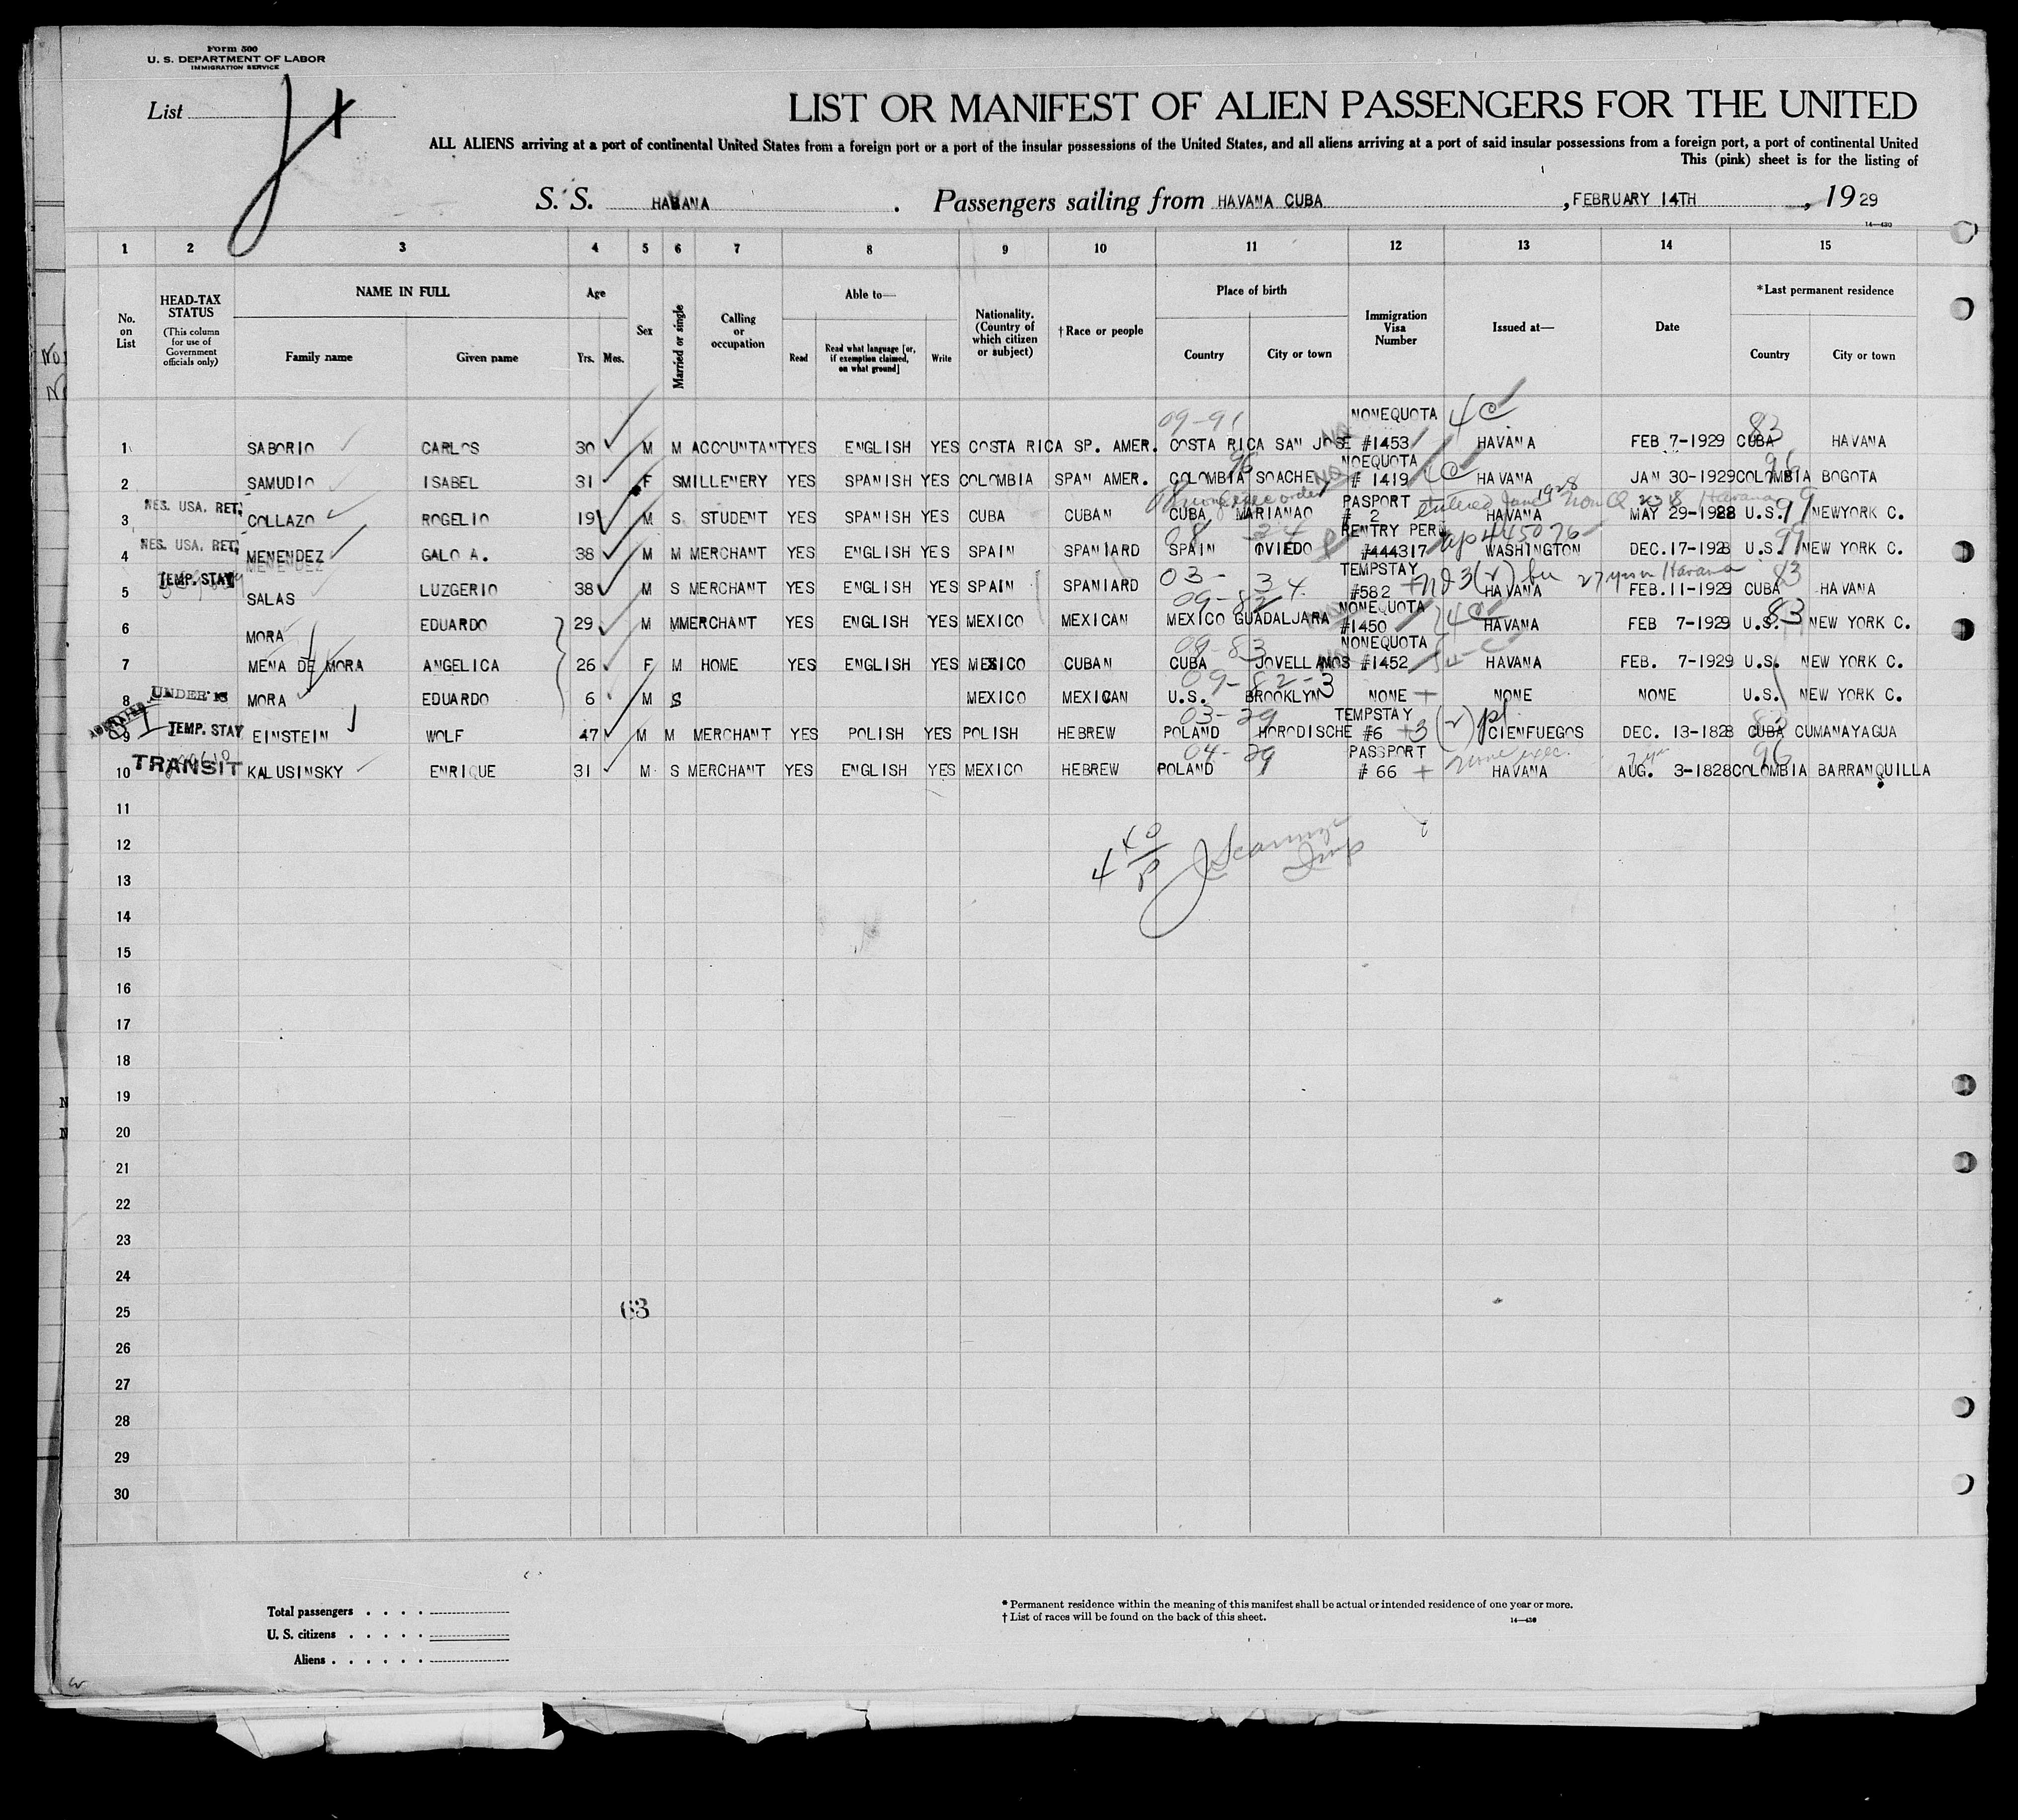 Form 500
U. S. DEPARTMENT OF LABOR
IMMIGRATION SERVICE
List
LIST OR MANIFEST OF ALIEN PASSENGERS FOR THE UNITED
ALL ALIENS arriving at a port of continental United States from a foreign port or a port of the insular possessions of the United States, and all aliens arriving at a port of said insular possessions from a foreign port, a port of continental United
This (pink) sheet is for the listing of
S. S. HAVANA . Passengers sailing from HAVANA CUBA , FEBRUARY 14TH , 19 29
14—430
1 2 3 4 5 6 7 8 9 10 11 12 13 14 15
No. on List
HEAD-TAX STATUS
(This column for use of Government officials only)
NAME IN FULL
Family name
Given name
Age
Yrs. Mos.
Sex
Married or single
Calling or occupation
Able to—
Read
Read what language [or, if exemption claimed, on what ground]
Write
Nationality. (Country of which citizen or subject)
†Race or people
Place of birth
Country
City or town
Immigration Visa Number
Issued at—
Date
*Last permanent residence
Country
City or town
09-91 NONEQUOTA 4C 83
1 SABORIO CARLOS 30 M M ACCOUNTANT YES ENGLISH YES COSTA RICA SP. AMER. COSTA RICA SAN JOSE #1453 HAVANA FEB 7-1929 CUBA HAVANA
96 NOEQUOTA 4C 96
2 SAMUDIO ISABEL 31 F S MILLENERY YES SPANISH YES COLOMBIA SPAN AMER. COLOMBIA SOACHE # 1419 HAVANA JAN 30-1929 COLOMBIA BOGOTA
NES. USA. RET. PASPORT entered June 1928 Non Q Havana 99
3 COLLAZO ROGELIO 19 M S STUDENT YES SPANISH YES CUBA CUBAN CUBA MARIANAO # 2 HAVANA MAY 29-1928 U.S. NEWYORK C.
NES. USA. RET. 34 RENTRY PER. 445076 99
4 MENENDEZ GALO A. 38 M M MERCHANT YES ENGLISH YES SPAIN SPANIARD SPAIN OVIEDO #444317 WASHINGTON DEC.17-1928 U.S. NEW YORK C.
TEMP. STAY 03-34 TEMPSTAY 3(2) 27 yrs in Havana 83
5 SALAS LUZGERIO 38 M S MERCHANT YES ENGLISH YES SPAIN SPANIARD #582 HAVANA FEB.11-1929 CUBA HAVANA
09-82 NONEQUOTA 4C 83
6 MORA EDUARDO 29 M M MERCHANT YES ENGLISH YES MEXICO MEXICAN MEXICO GUADALJARA #1450 HAVANA FEB 7-1929 U.S. NEW YORK C.
09-83 NONEQUOTA 4-C
7 MENA DE MORA ANGELICA 26 F M HOME YES ENGLISH YES MEXICO CUBAN CUBA JOVELLANOS #1452 HAVANA FEB. 7-1929 U.S. NEW YORK C.
UNDER 16 09-82-3
8 MORA EDUARDO 6 M S MEXICO MEXICAN U.S. BROOKLYN NONE NONE NONE U.S. NEW YORK C.
TEMP. STAY 03-29 TEMPSTAY 3(2) pl 83
9 EINSTEIN WOLF 47 M M MERCHANT YES POLISH YES POLISH HEBREW POLAND HORODISCHE #6 CIENFUEGOS DEC. 13-1828 CUBA CUMANAYAGUA
TRANSIT 04-29 PASSPORT 96
10 KALUSINSKY ENRIQUE 31 M S MERCHANT YES ENGLISH YES MEXICO HEBREW POLAND # 66 HAVANA AUG. 3-1828 COLOMBIA BARRANQUILLA
11
12
13
14
15
16
17
18
19
20
21
22
23
24
25 63
26
27
28
29
30
Total passengers . . . .
U. S. citizens . . . . .
Aliens . . . . . .
* Permanent residence within the meaning of this manifest shall be actual or intended residence of one year or more.
† List of races will be found on the back of this sheet.
14—430